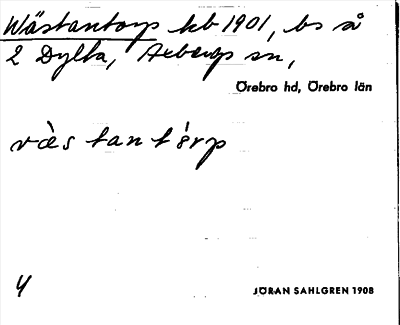 Wästantorp kb 1901, bs å
2 Dylta, Axbergs sn,
Örebro hd, Örebro län
västantórp
4
JÖRAN SAHLGREN 1908